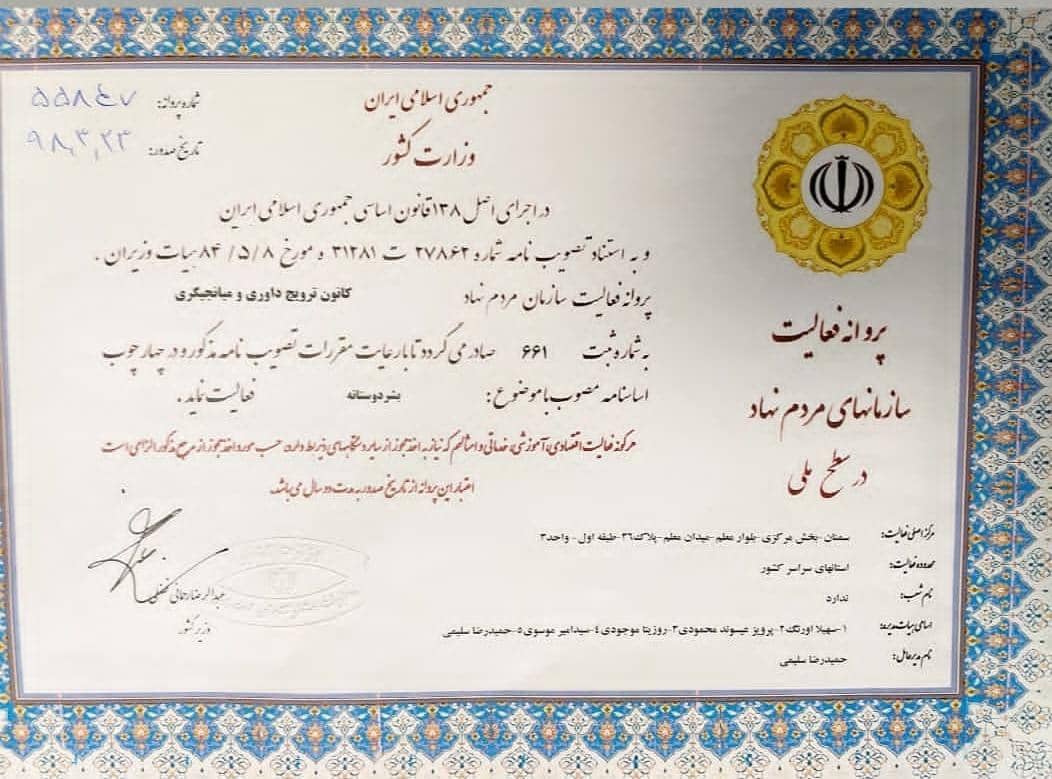 جمهوری اسلامی ایران
وزارت کشور
شماره پروانه: ۵۵۸۴۷
تاریخ صدور: ۹۸,۳,۲۳
در اجرای اصل ۱۳۸ قانون اساسی جمهوری اسلامی ایران
و به استناد تصویب نامه شماره ۲۷۸۶۲ ت ۳۱۲۸۱ ه مورخ ۸ /۵/ ۸۴ هیات وزیران .
پروانه فعالیت سازمان مردم نهاد کانون ترویج داوری و میانجیگری
به شماره ثبت ۶۶۱ صادر می گردد تا با رعایت مقررات تصویب نامه مذکور و در چهار چوب
اساسنامه مصوب با موضوع : بشردوستانه فعالیت نماید .
هرگونه فعالیت اقتصادی، آموزشی، خدماتی و امثالهم که نیاز به اخذ مجوز از سایر دستگاههای ذیربط دارد، حسب مورد اخذ مجوز از مرجع مذکور الزامی است
اعتبار این پروانه از تاریخ صدور به مدت دو سال می باشد.
عبدالرضا رحمانی فضلی
وزیر کشور
پروانه فعالیت
سازمانهای مردم نهاد
در سطح ملی
مرکز اصلی فعالیت: سمنان -بخش مرکزی -بلوار معلم -میدان معلم -پلاک۳۶- طبقه اول - واحد۳
محدوده فعالیت: استانهای سراسر کشور
نام شعب: ندارد
اسامی هیات مدیره: ۱-سهیلا اورنگ۲- پرویز میسوند محمودی۳-روزیتا موجودی ٤-سیدامیر موسوی ٥-حمیدرضا سلیمی
نام مدیرعامل: حمیدرضا سلیمی